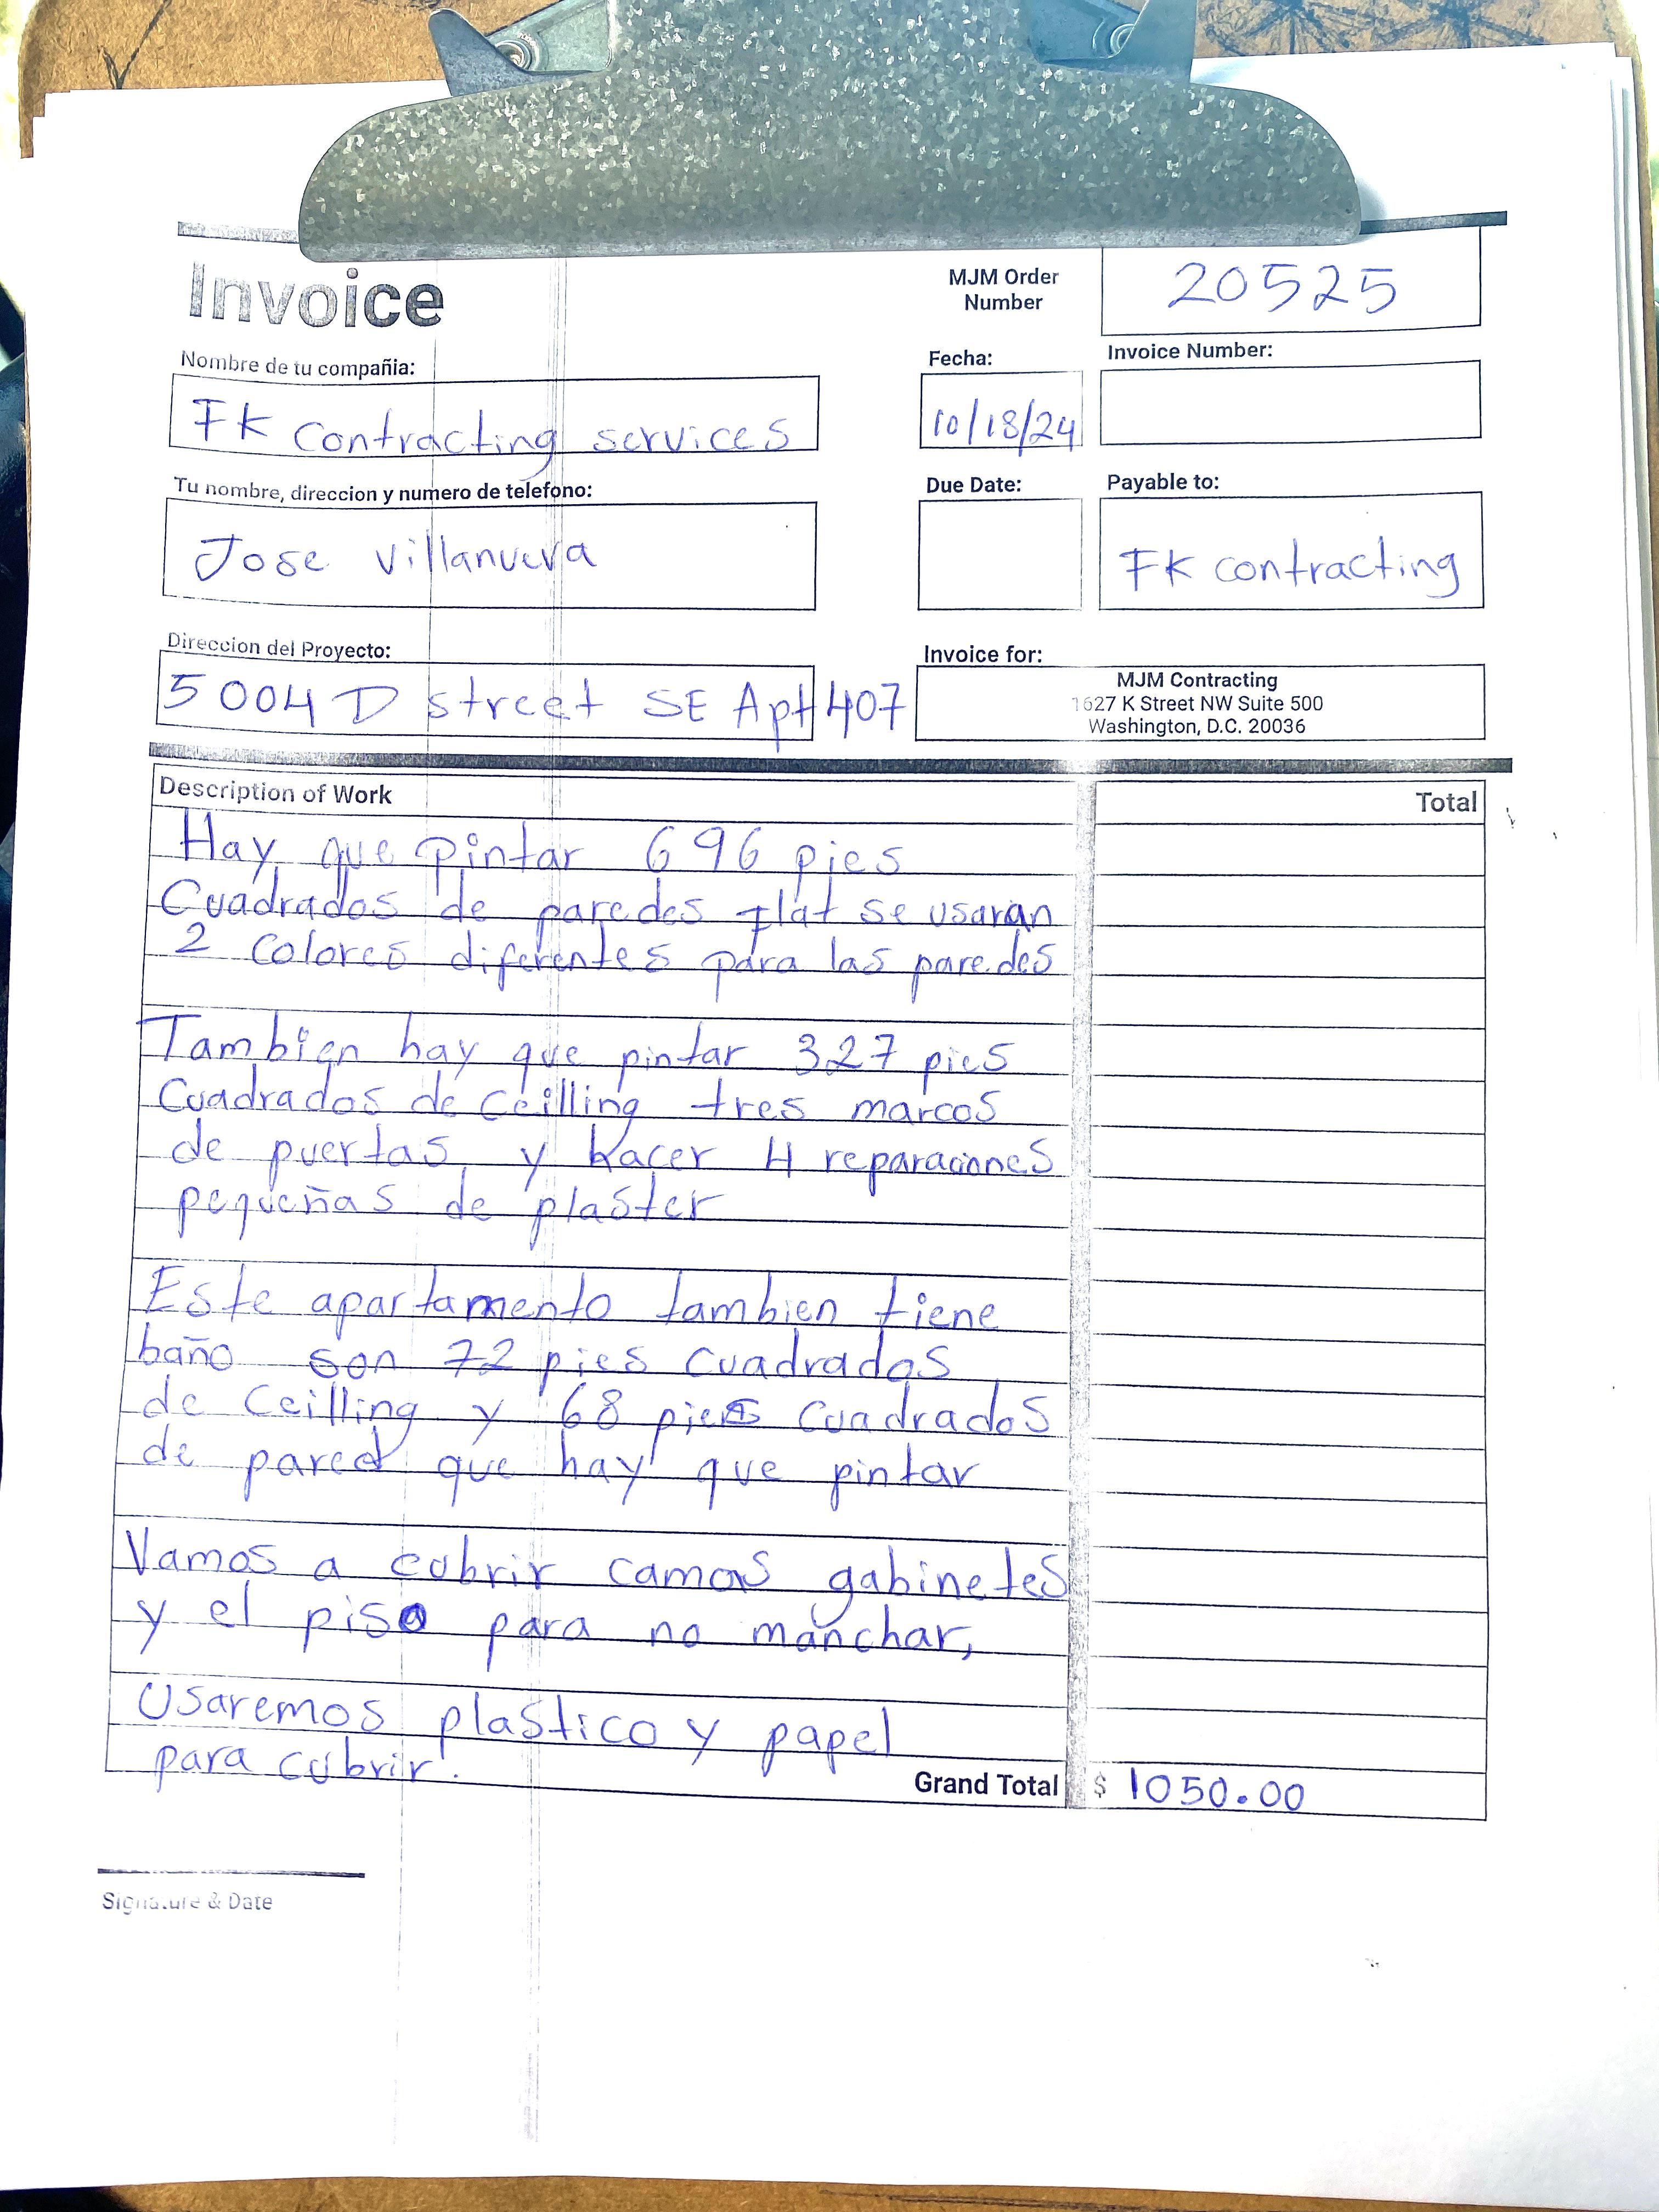 Invoice
MJM Order
Number
20525
Nombre de tu compañia:
FK contracting services
Fecha:
10/18/24
Invoice Number:
Tu nombre, direccion y numero de telefono:
Jose villanueva
Due Date:
Payable to:
FK contracting
Direccion del Proyecto:
5004 D street SE Apt 407
Invoice for:
MJM Contracting
1627 K Street NW Suite 500
Washington, D.C. 20036
Description of Work
Total
Hay que pintar 696 pies
Cuadrados de paredes flat se usaran
2 colores diferentes para las paredes
Tambien hay que pintar 327 pies
Cuadrados de ceilling tres marcos
de puertas y hacer 4 reparaciones
pequeñas de plaster
Este apartamento tambien tiene
baño son 72 pies cuadrados
de ceilling y 68 pies cuadrados
de pared que hay que pintar
Vamos a cubrir camas gabinetes
y el piso para no manchar,
Usaremos plastico y papel
para cubrir.
Grand Total
$ 1050.00
Signature & Date